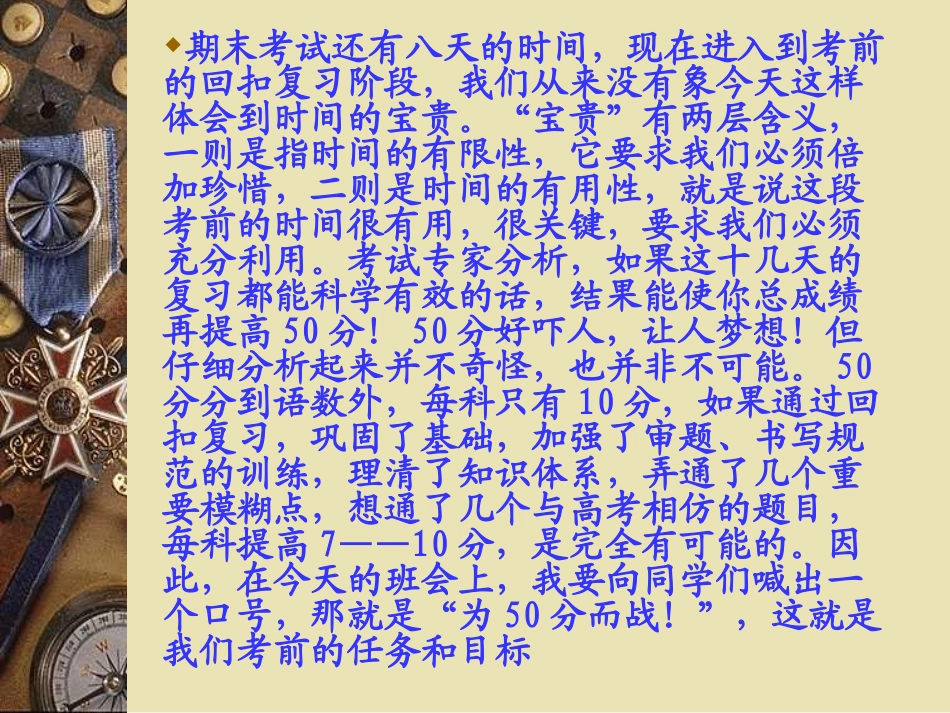 期末考试还有八天的时间，现在进入到考前
的回扣复习阶段，我们从来没有象今天这样
体会到时间的宝贵。“宝贵”有两层含义，
一则是指时间的有限性，它要求我们必须倍
加珍惜，二则是时间的有用性，就是说这段
考前的时间很有用，很关键，要求我们必须
充分利用。考试专家分析，如果这十几天的
复习都能科学有效的话，结果能使你总成绩
再提高 50 分！ 50 分好吓人，让人梦想！但
仔细分析起来并不奇怪，也并非不可能。 50
分分到语数外，每科只有 10 分，如果通过回
扣复习，巩固了基础，加强了审题、书写规
范的训练，理清了知识体系，弄通了几个重
要模糊点，想通了几个与高考相仿的题目，
每科提高 7——10 分，是完全有可能的。因
此，在今天的班会上，我要向同学们喊出一
个口号，那就是“为 50 分而战！”，这就是
我们考前的任务和目标